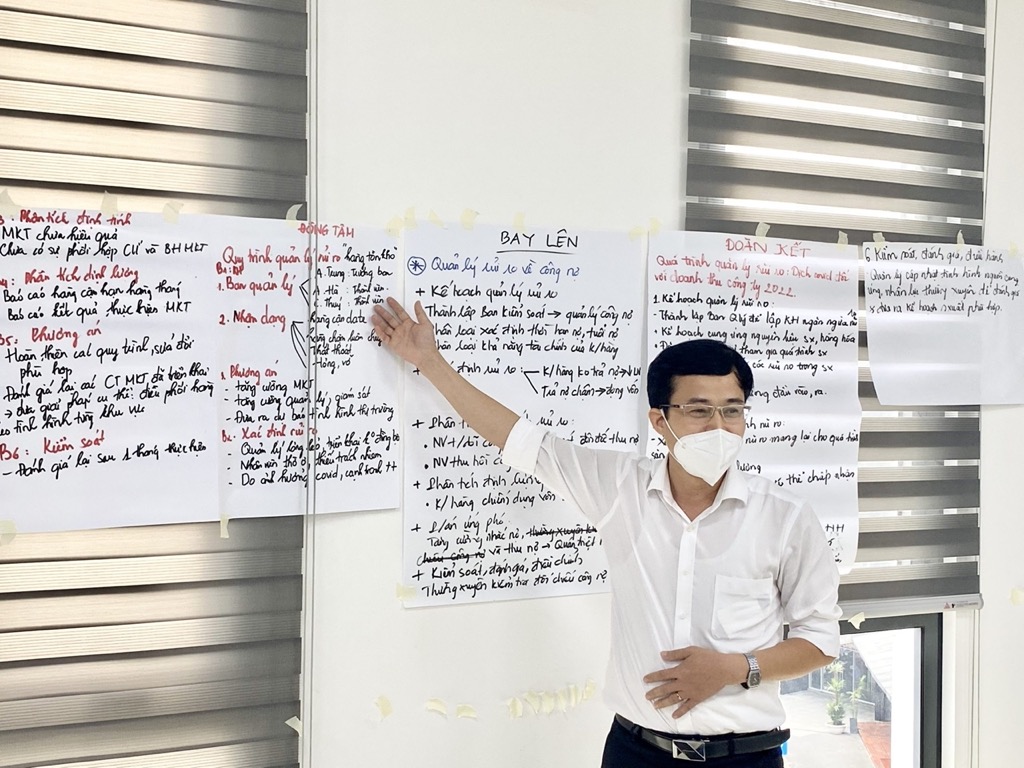 Phân tích định tính
MKT chưa hiệu quả
Chưa có sự phối hợp CƯ và BH MKT
Phân tích định lượng
Báo cáo hàng cận hạn hàng tháng
Báo cáo kết quả thực hiện MKT
B5: Phương án
Hoàn thiện cal quy trình, sửa đổi
phù hợp
Đánh giá lại các CT MKT đã triển khai
→ đưa giải pháp cụ thể: điều phối hàng
theo tình hình từng khu vực
B6: Kiểm soát
- Đánh giá lại sau 1 tháng thực hiện
ĐỒNG TÂM
Quy trình quản lý rủi ro "hàng tồn kho"
1. Ban quản lý
A. Trung: Trưởng ban
A. Hà: Thành viên
C. Thuý: Thành viên
2. Nhận dạng
hàng cận date
hàng chậm luân chuyển
Thất thoát
- Hỏng, vỡ
Phương án
- tăng cường MKT
- tăng cường quản lý, giám sát
- Đưa ra dự báo tình hình thị trường
Xác định rủi ro
Quản lý lỏng lẻo, triển khai k đồng bộ
- Nhân viên thờ ơ, thiếu trách nhiệm
- Do ảnh hưởng covid, cạnh tranh TT
BAY LÊN
Quản lý rủi ro về công nợ
+ Kế hoạch quản lý rủi ro
Thành lập Ban kiểm soát → quản lý công nợ
Phân loại xác định thời hạn nợ, tuổi nợ
Phân loại khả năng tài chính của K/hàng
định rủi ro:
K/hàng ko trả nợ →
Trả nợ chậm → đọng vốn
+ Phân
NV
đôn đốc thu nợ
NV thu hồi công
+ Phân tích định lượng
K/hàng chiếm dụng vốn
+ P/án ứng phó
Tăng cường nhắc nợ, thường xuyên
chiếu công nợ và thu nợ → Quán triệt
+ Kiểm soát, đánh giá, điều chỉnh
Thường xuyên kiểm tra đối chiếu công nợ
ĐOÀN KẾT
Quá trình quản lý rủi ro: Dịch covid đối
với doanh thu công ty 2022.
1. Kế hoạch quản lý rủi ro:
- Thành lập ban Q.lý để lập KH ngăn ngừa
Kế hoạch cung ứng nguyên liệu SX, hàng hóa
tham gia quá trình SX
các rủi ro trong SX
ro mang lại cho quá trình
thể chấp nhận
6 Kiểm soát, đánh giá, điều hành
Quản lý cập nhật tình hình nguồn cung
ứng, nhân lực thường xuyên để đánh giá
và đưa ra kế hoạch SXKD phù hợp.